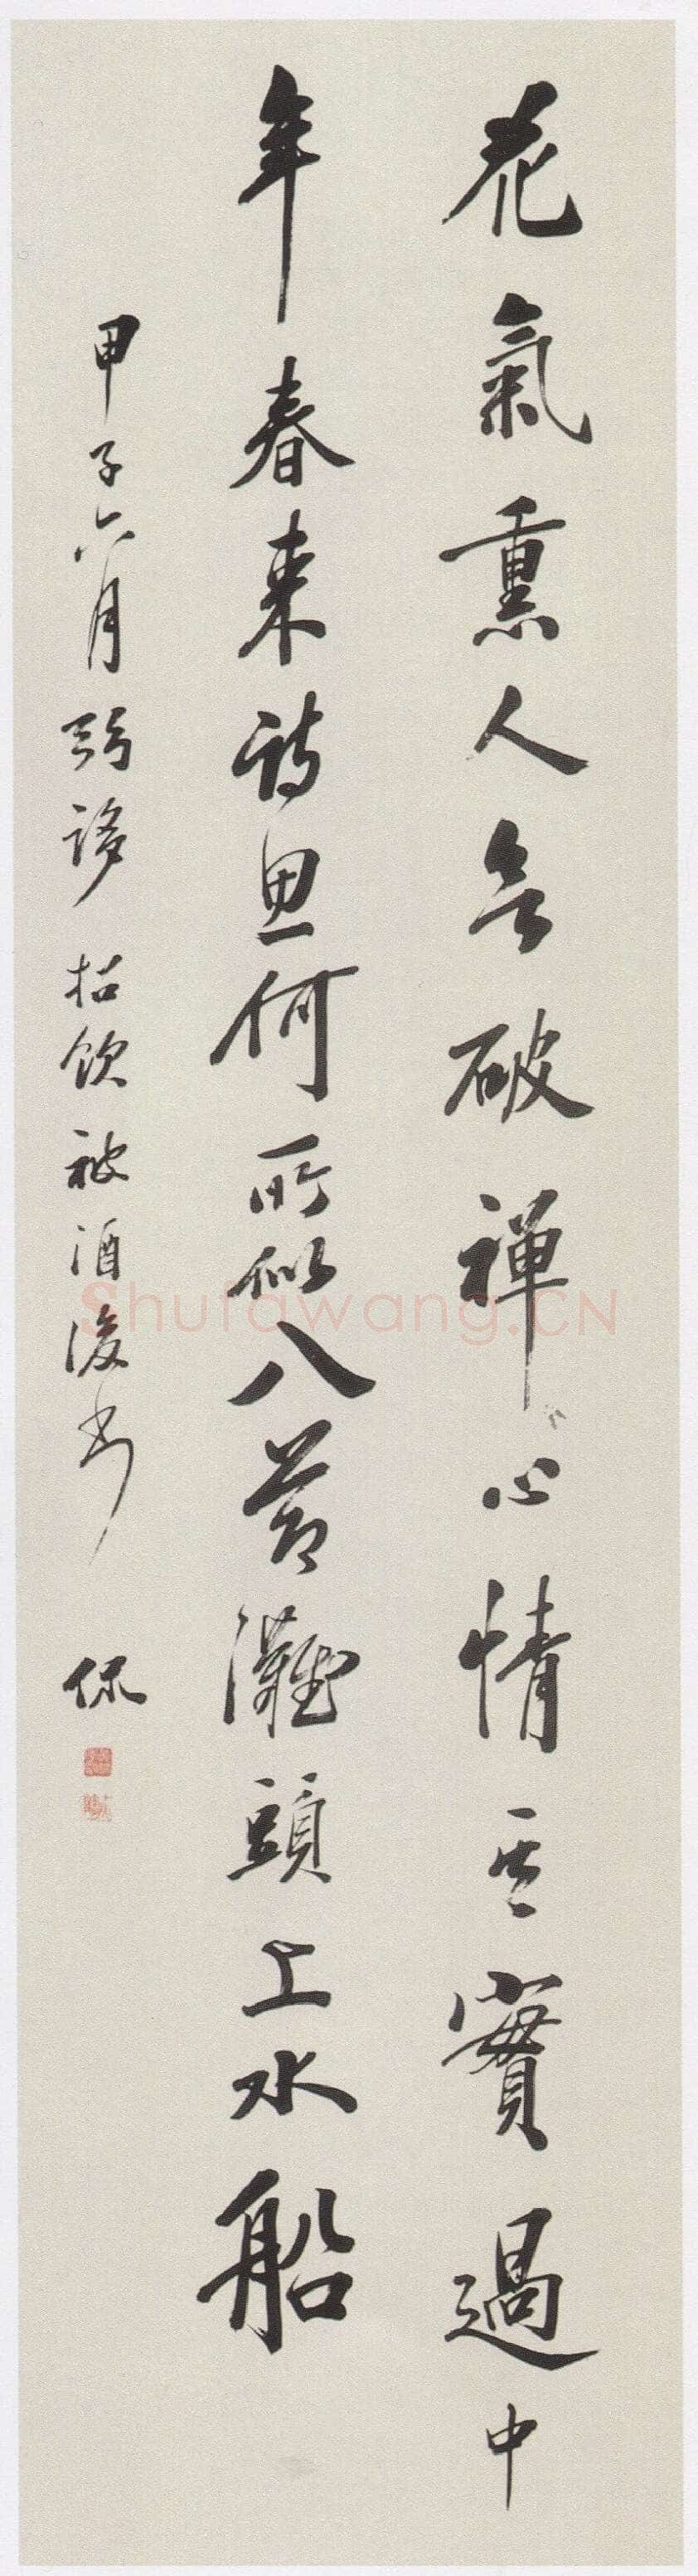 花氣熏人欲破禪心情其實過中
年春来詩思何所似八節灘頭上水船
甲子六月弱誃招飲被酒後書 侃
Shufawang.CN